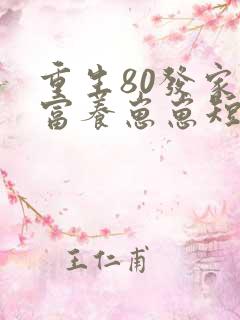 重生80發家
富養崽崽短
王仁甫